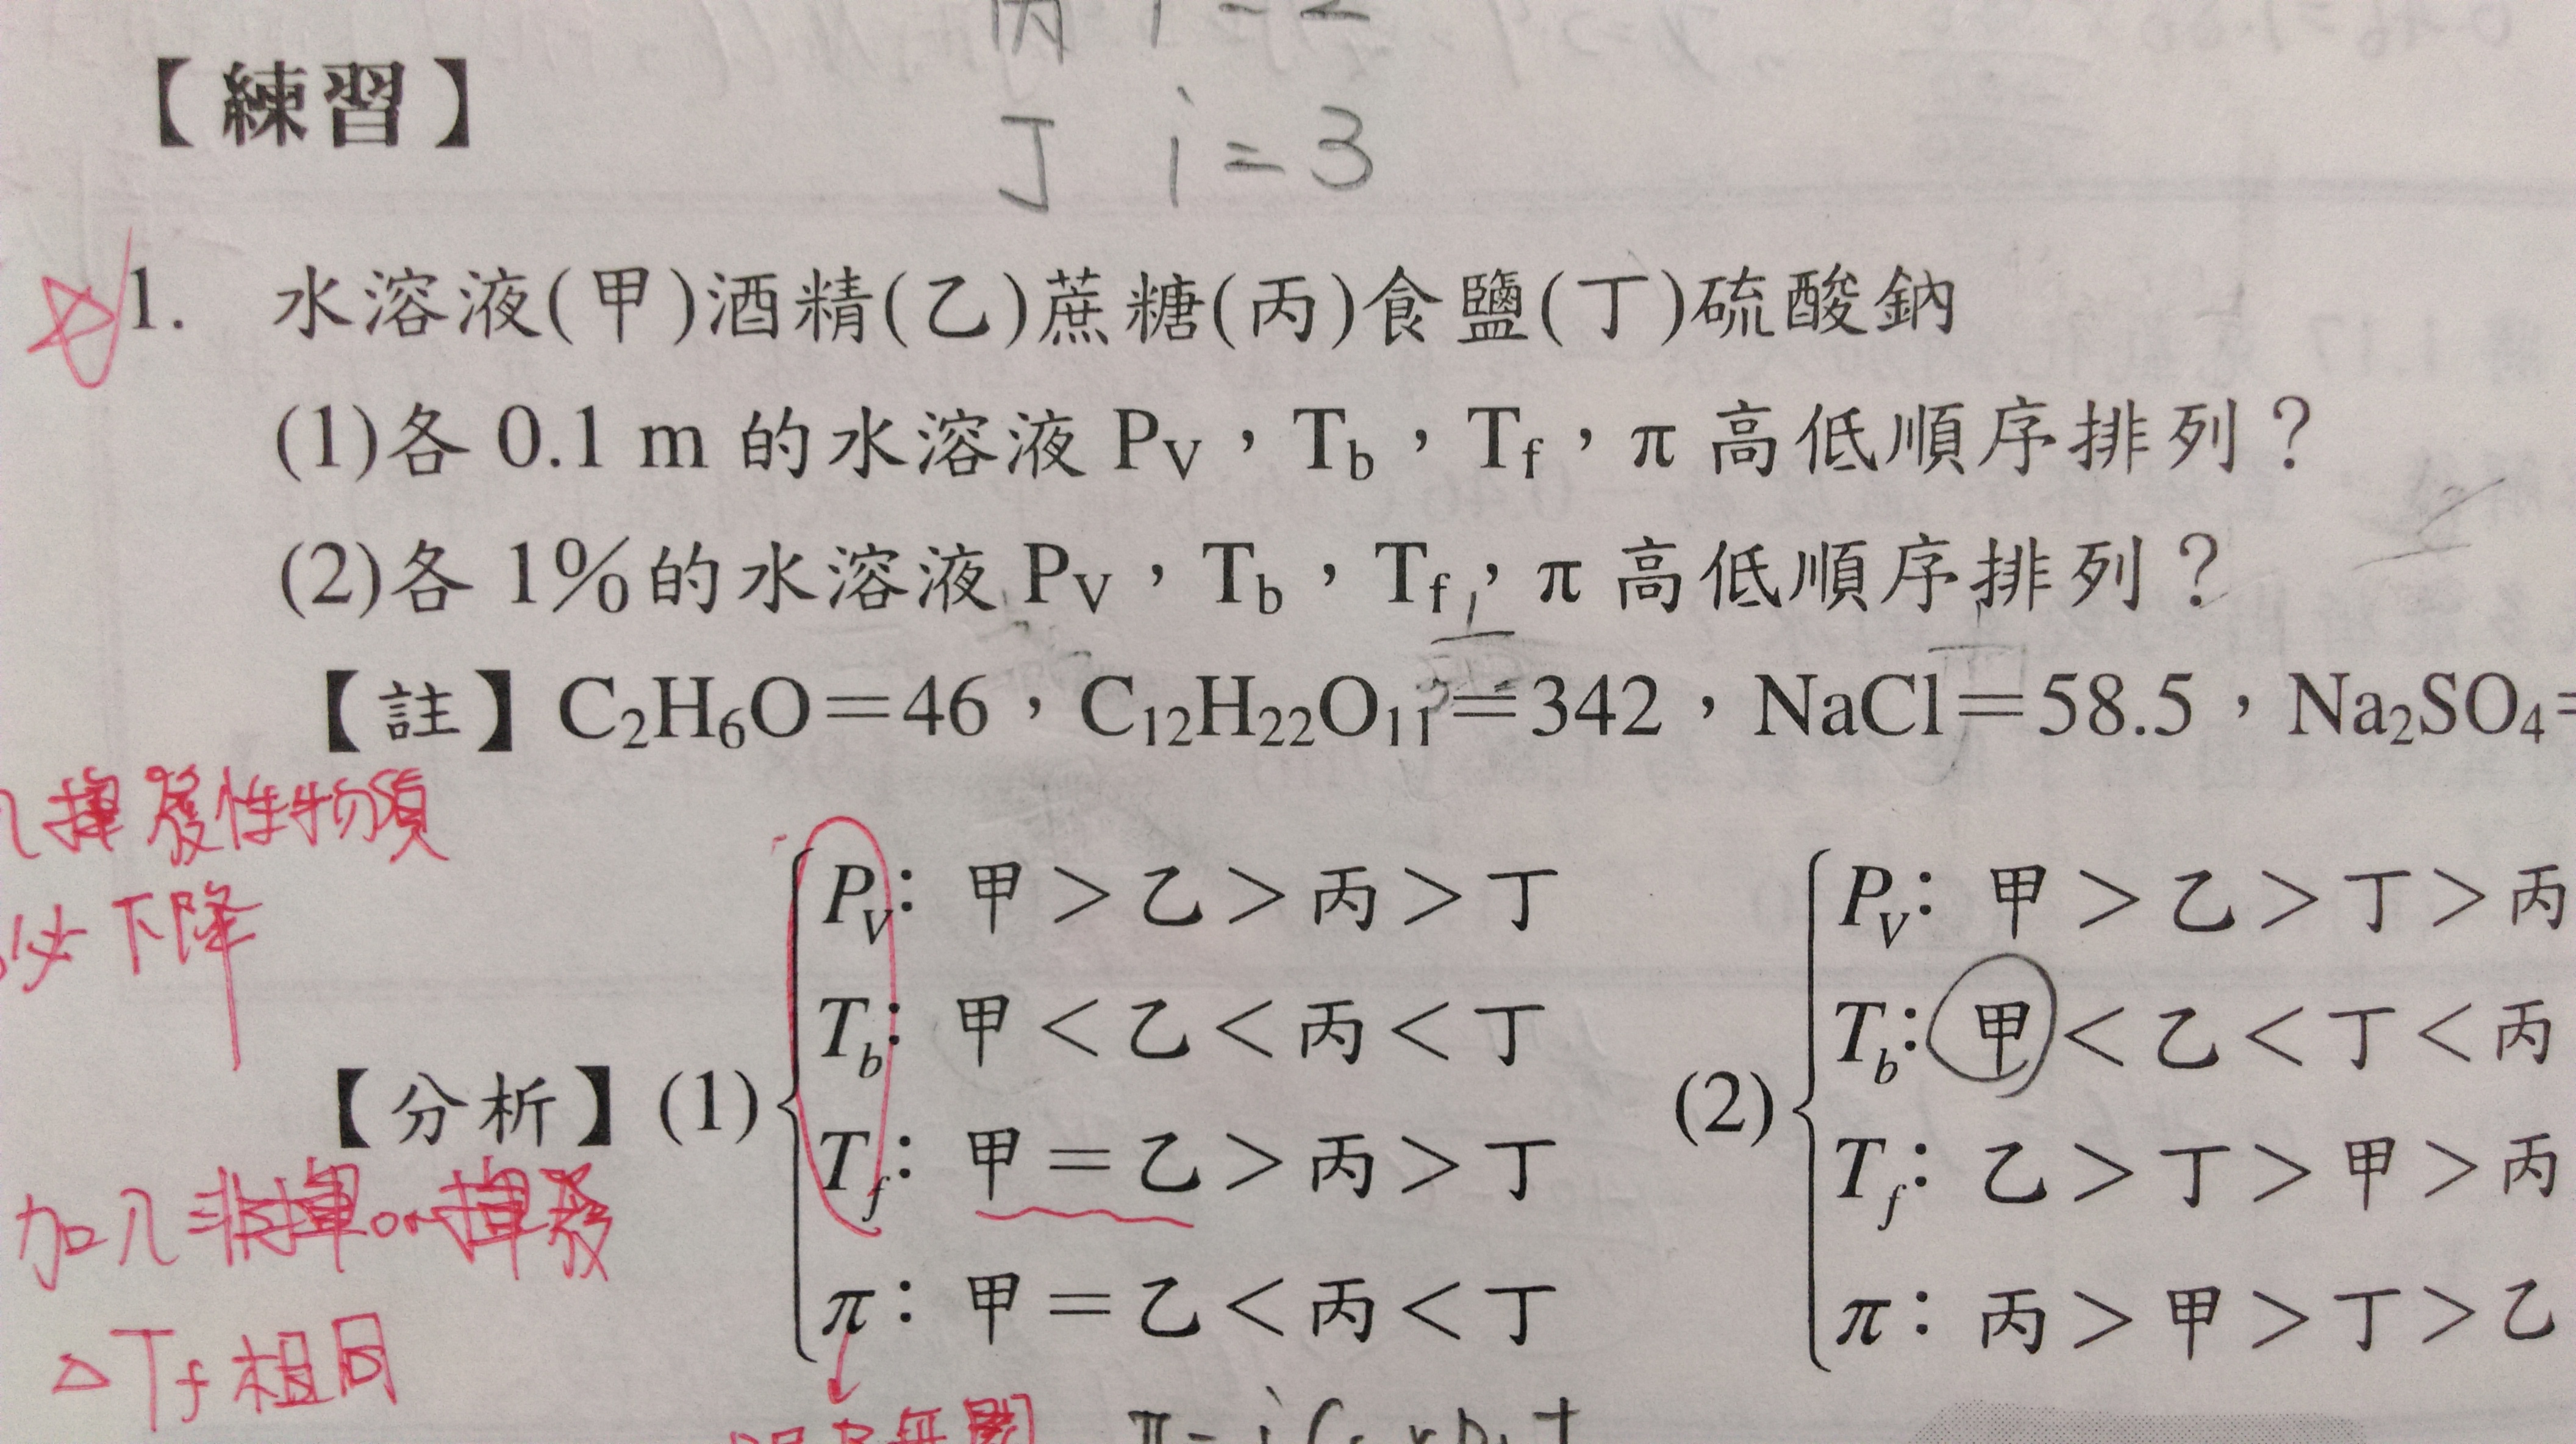 丙 i=2
【練習】
丁 i=3
1. 水溶液(甲)酒精(乙)蔗糖(丙)食鹽(丁)硫酸鈉
(1)各 0.1 m 的水溶液 PV，Tb，Tf，π 高低順序排列？
(2)各 1%的水溶液 PV，Tb，Tf，π 高低順序排列？
【註】C2H6O＝46，C12H22O11＝342，NaCl＝58.5，Na2SO4=
揮發性物質
必下降
【分析】(1)
PV: 甲＞乙＞丙＞丁
Tb: 甲＜乙＜丙＜丁
Tf: 甲＝乙＞丙＞丁
π: 甲＝乙＜丙＜丁
(2)
PV: 甲＞乙＞丁＞丙
Tb: 甲＜乙＜丁＜丙
Tf: 乙＞丁＞甲＞丙
π: 丙＞甲＞丁＞乙
加入非揮or揮發
△Tf相同